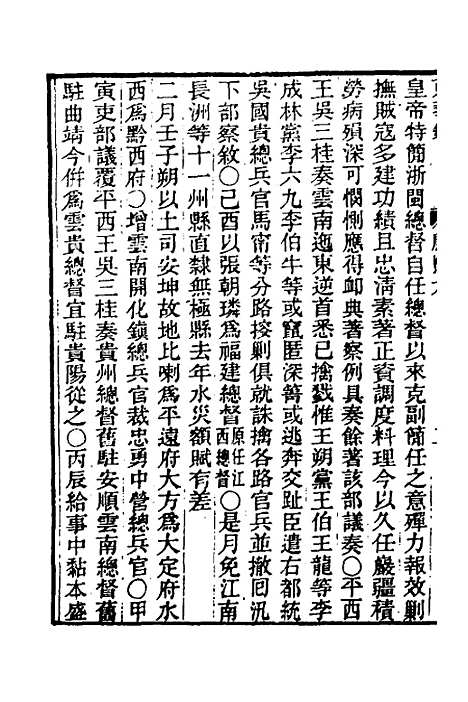 皇帝特簡浙閩總督自任總督以來克副簡任之意殫力報效剿
撫賊寇多建功績且忠淸素著正資調度料理今以久任嚴疆積
勞病殞深可憫惻應得䘏典著察例具奏餘著該部議奏○平西
王吳三桂奏雲南迤東逆首悉已擒戮惟王朔黨王伯王龍等李
成林黨李六九李伯牛等或竄匿深箐或逃奔交趾臣遣右都統
吳國貴總兵官馬甯等分路捜剿俱就誅擒各路官兵並撤囘汛
下部察敘○己酉以張朝璘爲福建總督原任江西總督○是月免江南
長洲等十一州縣直隸無極縣去年水災額賦有差
二月壬子朔以土司安坤故地比喇爲平遠府大方爲大定府水
西爲黔西府○增雲南開化鎭總兵官裁忠勇中營總兵官○甲
寅吏部議覆平西王吳三桂奏貴州總督舊駐安順雲南總督舊
駐曲靖今倂爲雲貴總督宜駐貴陽從之○丙辰給事中黏本盛